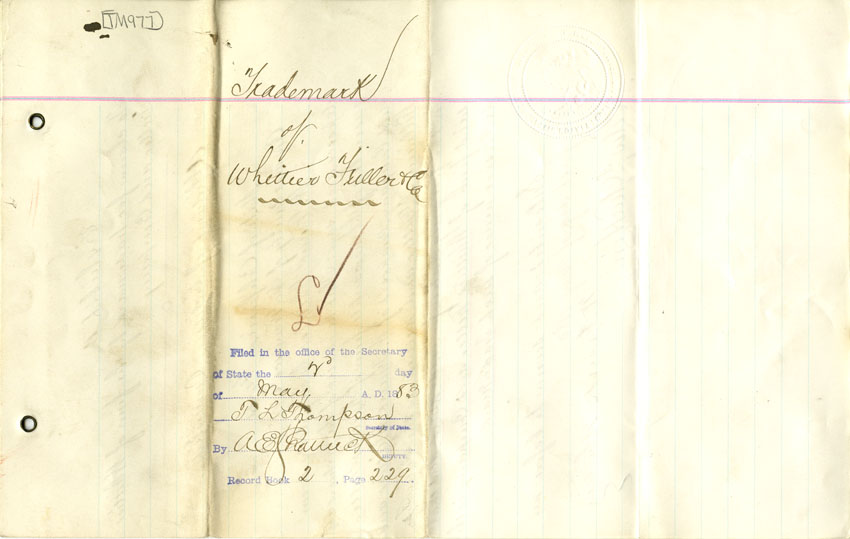 TM977
Trademark
of
Whittier Fuller & Co
Filed in the office of the Secretary
of State the 2d day
of May A. D. 1883
T L Thompson
Secretary of State.
By A E
DEPUTY.
Record Book 2, Page 229.